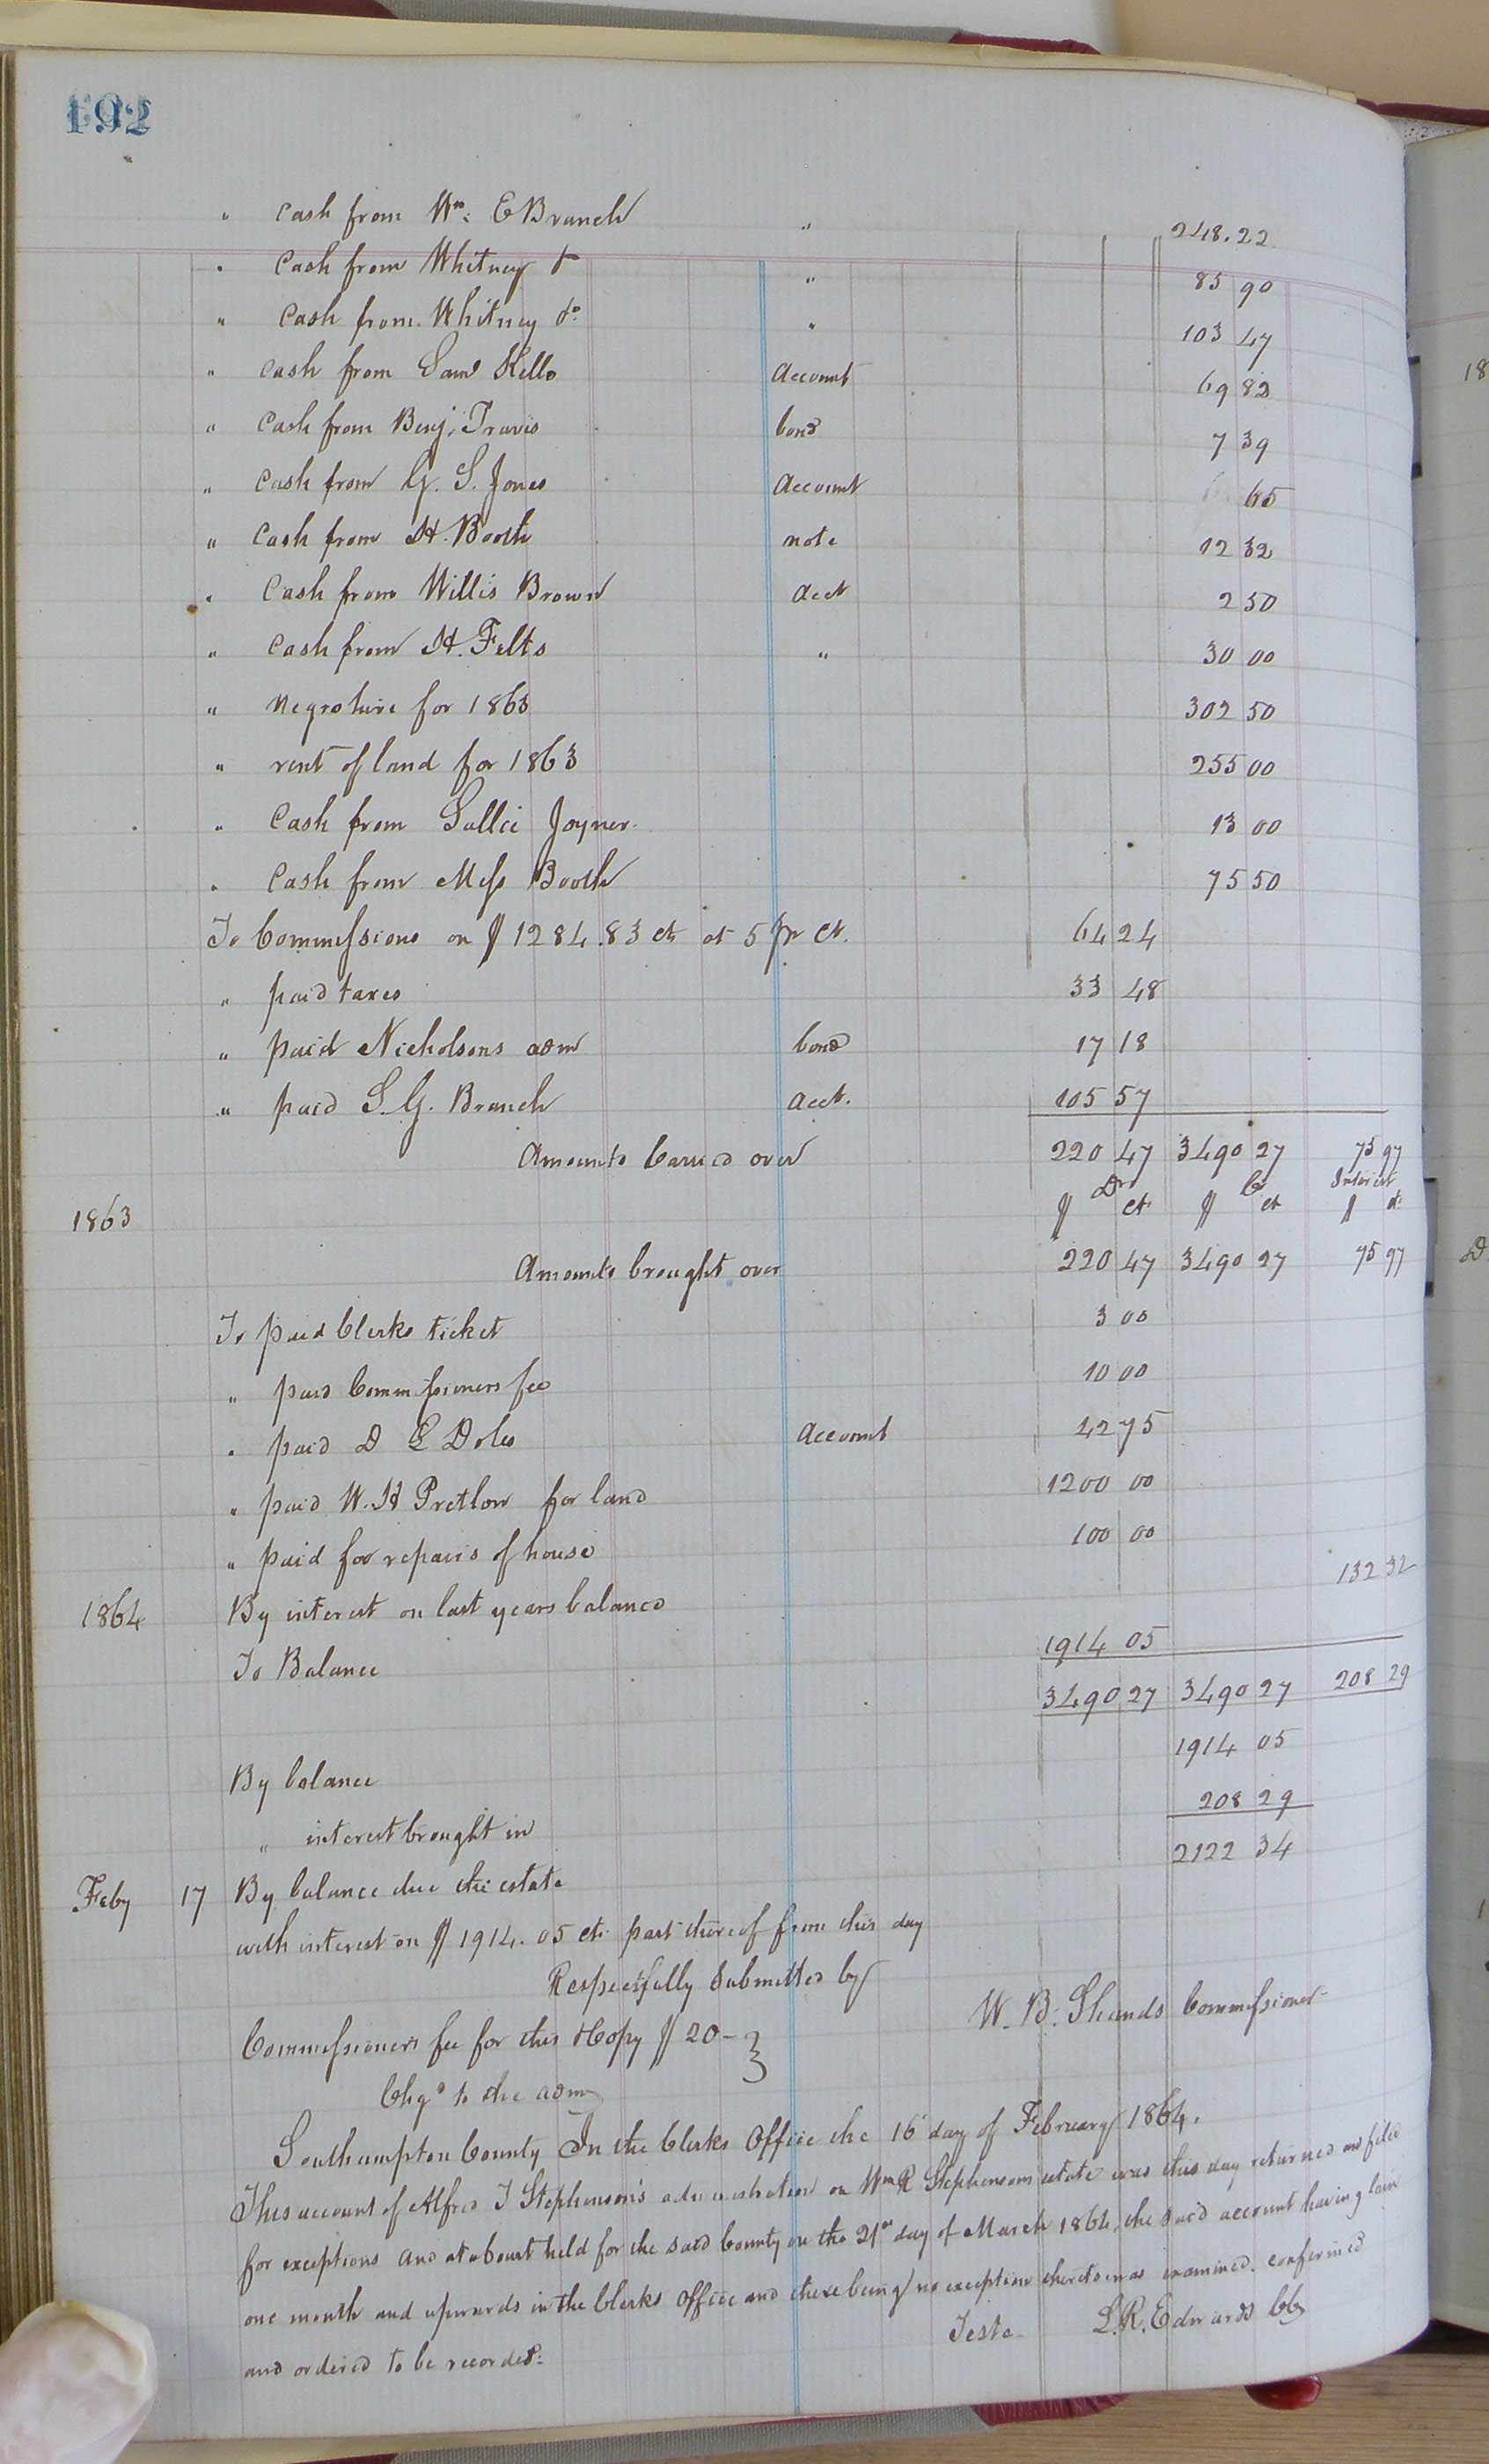 192
" Cash from Wm: E Branch " 248.22
" Cash from Whitney & " 85 90
" Cash from Whitney &c " 103 47
" Cash from Saml Kello Account 69 82
" Cash from Benj. Travis bond 7 39
" Cash from G. S. Jones Account 65
" Cash from H. Booth note 12 32
" Cash from Willis Brown acct 2 50
" Cash from H. Felts " 30 00
" Negro hire for 1863 302 50
" rent of land for 1863 255 00
" Cash from Sallie Joyner 13 00
" Cash from Mess Booth 75 50
To Commissions on $1284.83 cts at 5 pr ct. 64 24
" paid taxes 33 48
" paid Nicholsons adm bond 17 18
" paid S. G. Branch acct. 105 57
Amounts Carried over 220 47 3490 27 75 97
1863 $ Dr ct $ Cr ct Interest $ ct
Amounts brought over 220 47 3490 27 75 97
To paid Clerks ticket 3 00
" paid Commissioners fee 10 00
" paid D E Doles Account 42 75
" paid W. H Pretlow for land 1200 00
" paid for repairs of house 100 00
1864 By interest on last years balance 132 32
To Balance 1914 05
3490 27 3490 27 208 29
By balance 1914 05
" interest brought in 208 29
Feby 17 By balance due the estate 2122 34
with interest on $1914.05 cts part thereof from this day
Respectfully Submitted by
W. B. Shands Commissioner
Commissioners fee for this & Copy $20-
Chgd to the adm
Southampton County In the Clerks Office the 16 day of February 1864.
This account of Alfred J Stephenson's administration on Wm R Stephensons estate was this day returned and filed
for exceptions and at a Court held for the said County on the 21st day of March 1864, the said account having lain
one month and upwards in the Clerks Office and there being no exception thereto was examined. confirmed
and ordered to be recorded:
Teste L. R. Edwards CC